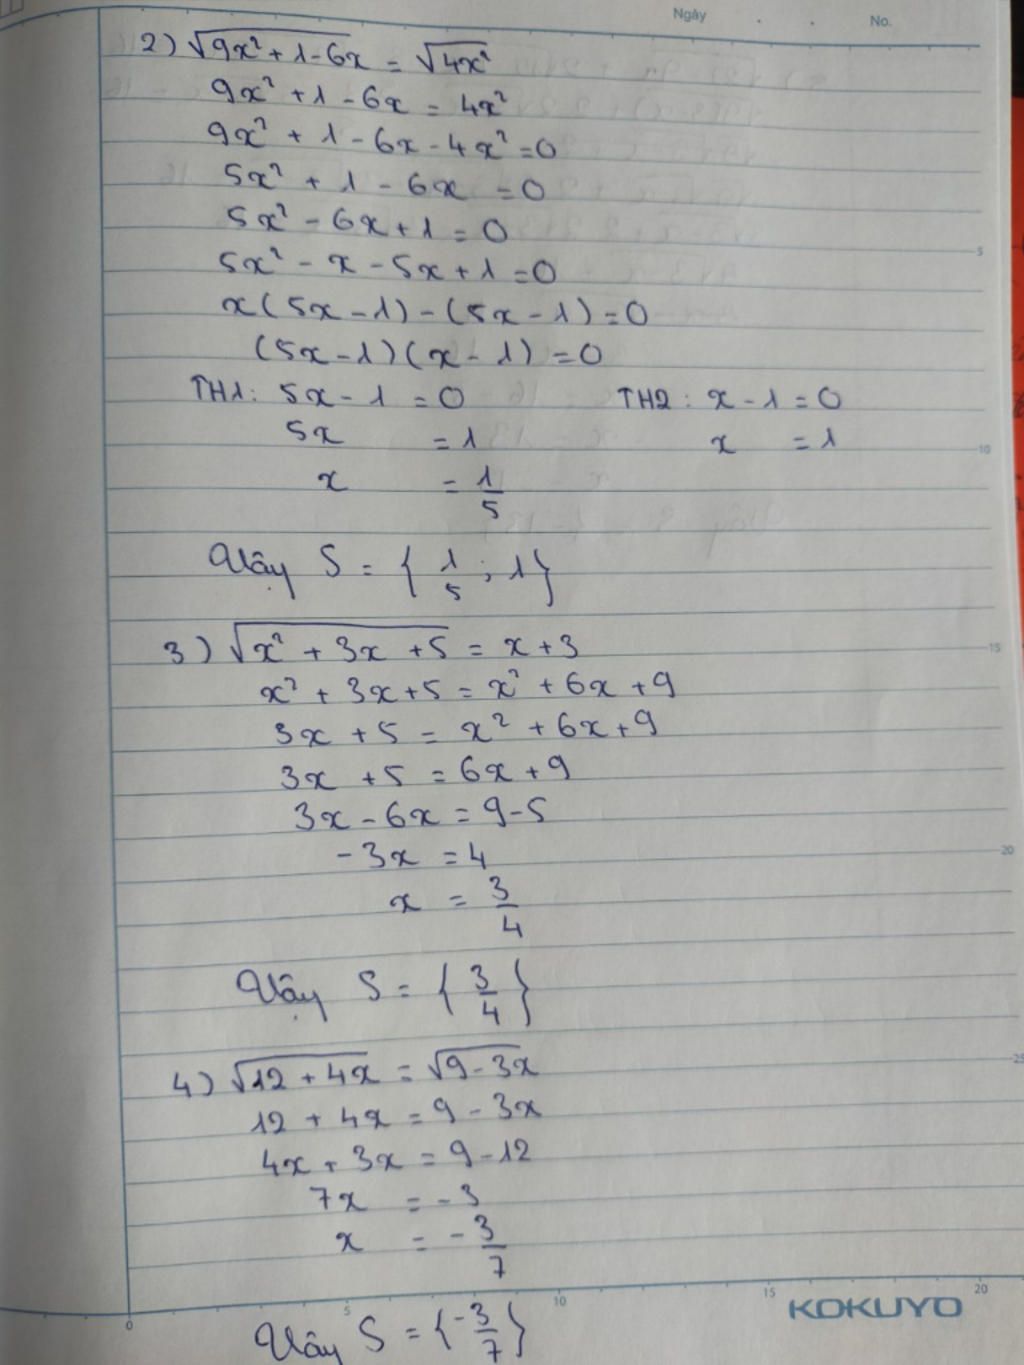 Ngày . . No.
2) √(9x² + 1 - 6x) = √(4x²)
9x² + 1 - 6x = 4x²
9x² + 1 - 6x - 4x² = 0
5x² + 1 - 6x = 0
5x² - 6x + 1 = 0
5x² - x - 5x + 1 = 0
x(5x - 1) - (5x - 1) = 0
(5x - 1)(x - 1) = 0
TH1: 5x - 1 = 0 TH2: x - 1 = 0
5x = 1 x = 1
x = 1/5
Vậy S = { 1/5 ; 1 }
3) √(x² + 3x + 5) = x + 3
x² + 3x + 5 = x² + 6x + 9
3x + 5 = x² + 6x + 9
3x + 5 = 6x + 9
3x - 6x = 9 - 5
-3x = 4
x = 3/4
Vậy S = { 3/4 }
4) √(12 + 4x) = √(9 - 3x)
12 + 4x = 9 - 3x
4x + 3x = 9 - 12
7x = -3
x = -3/7
Vậy S = { -3/7 }
5
10
15
20
25
0 5 10 15 20
KOKUYO